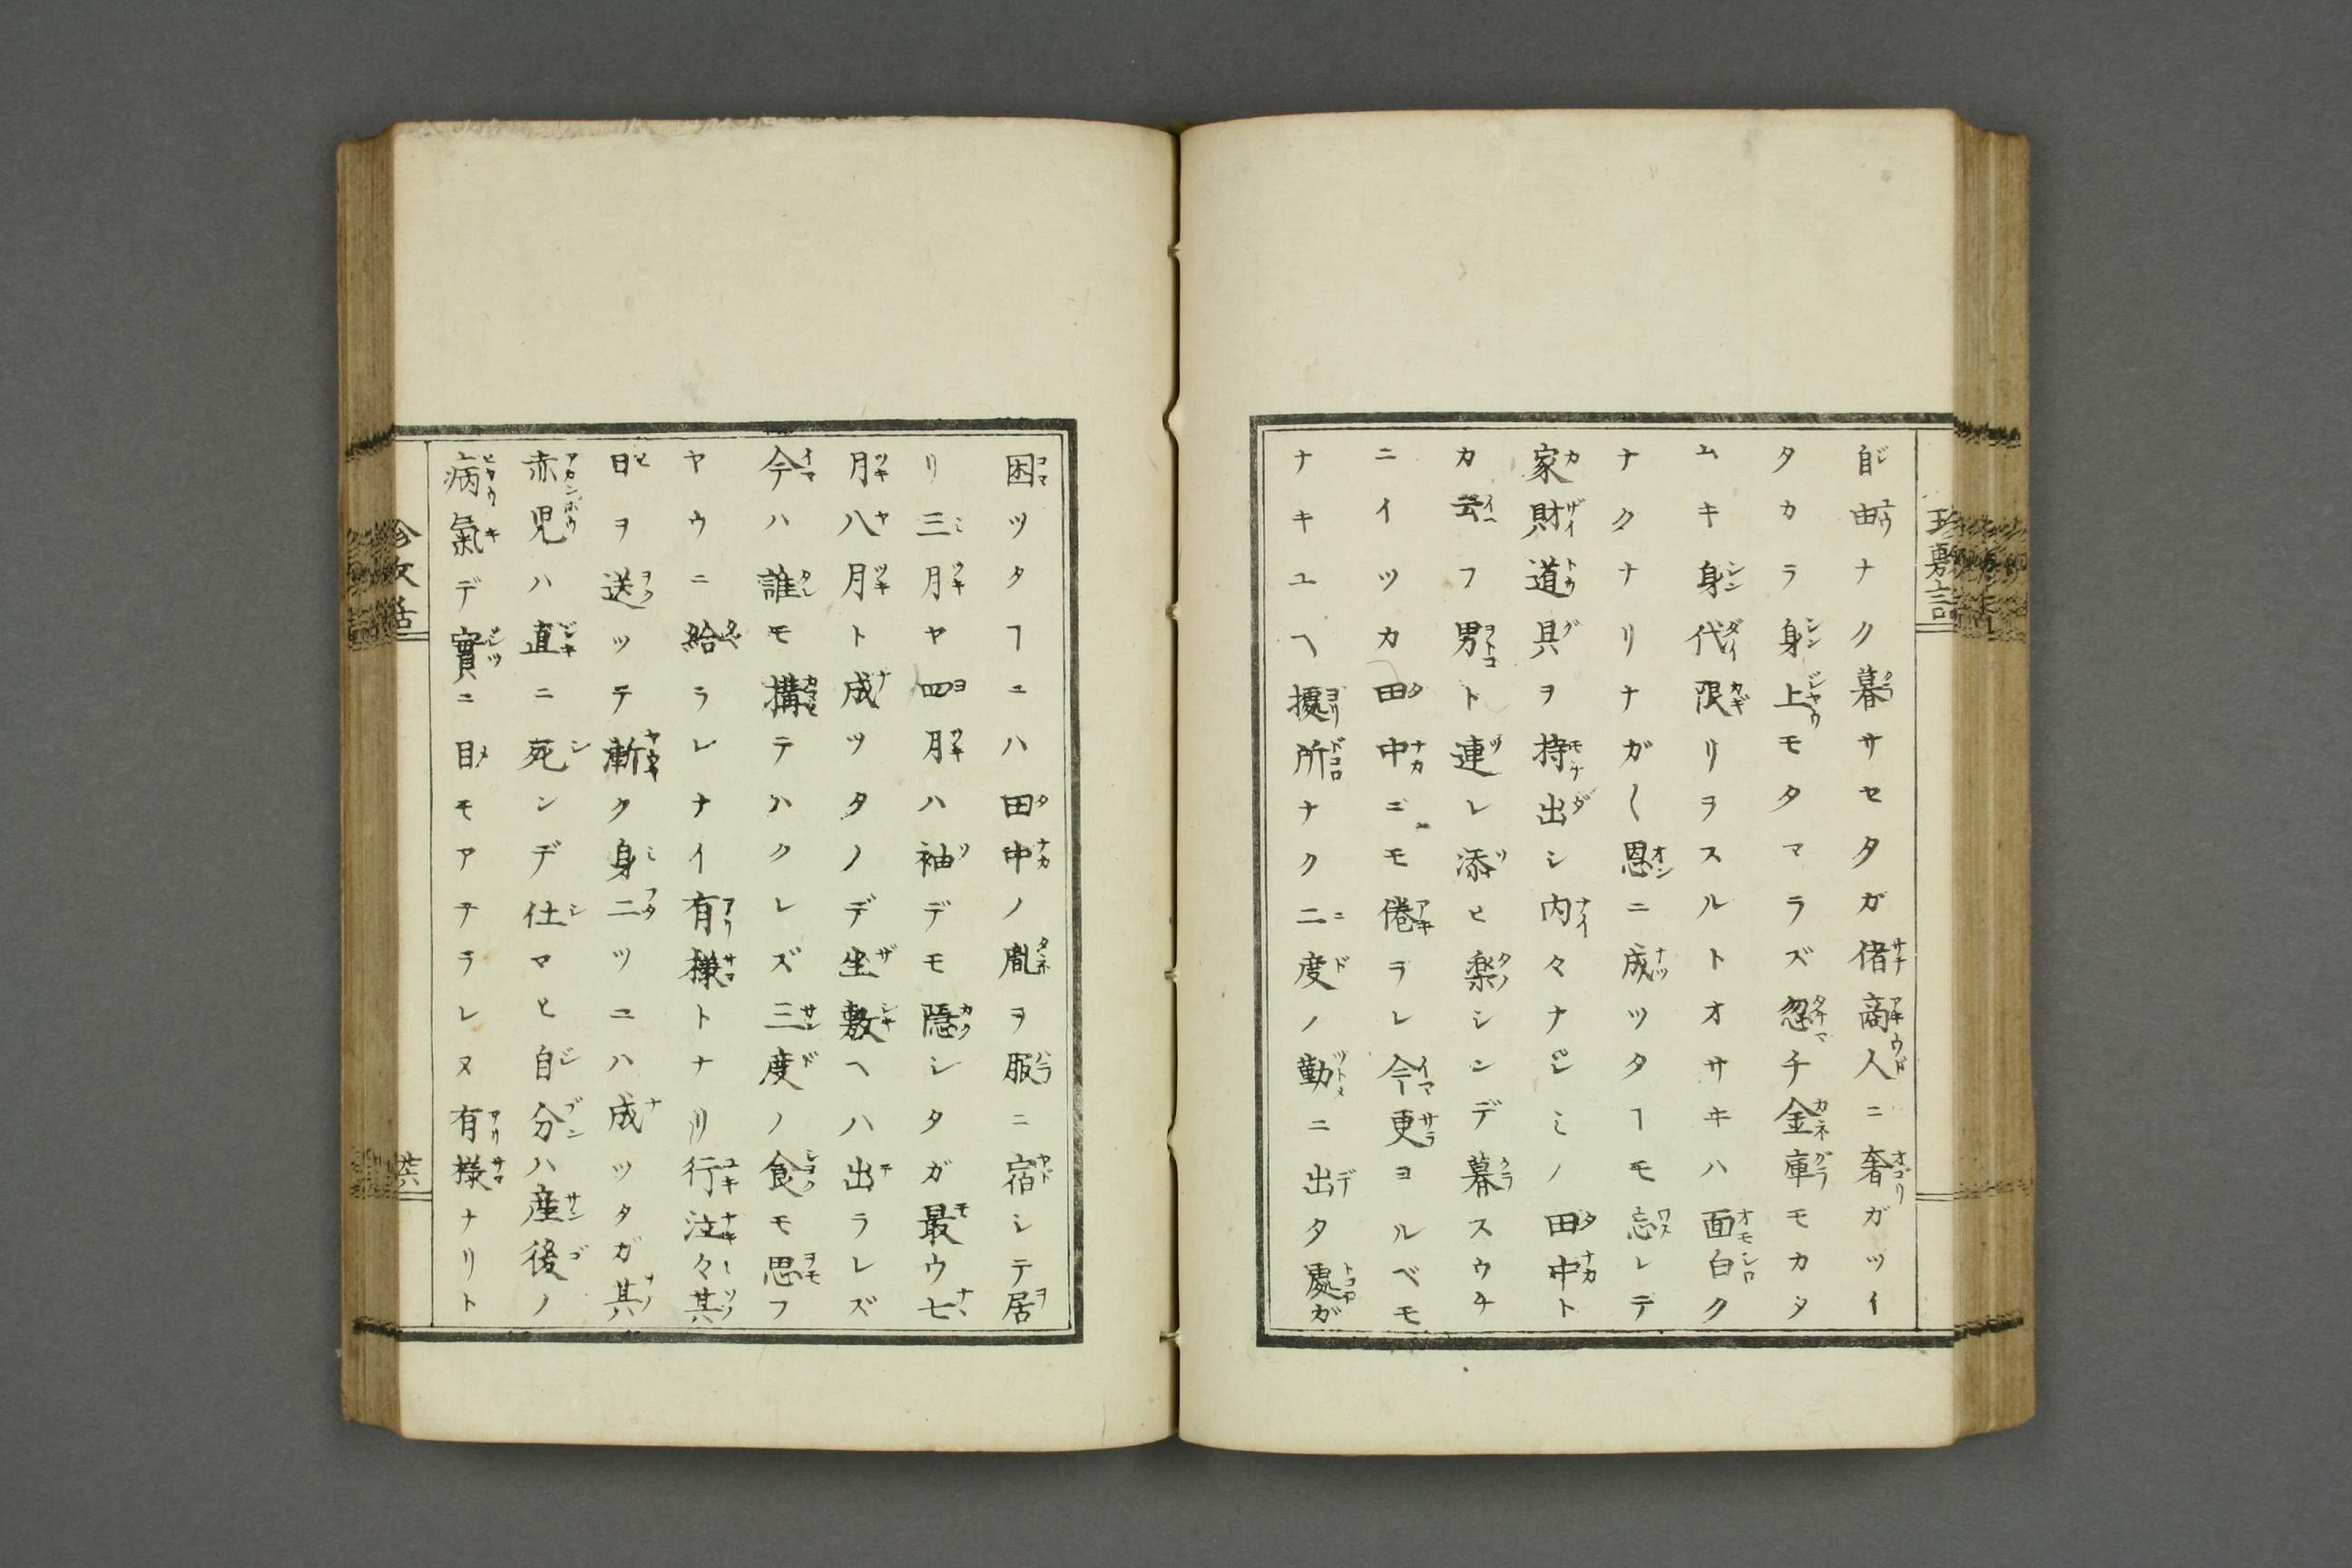 自由ナク暮サセタガ偖商人ニ奢ガツイ
タカラ身上モタマラズ忽チ金庫モカタ
ムキ身代限リヲスルトオサキハ面白ク
ナクナリナガ〱恩ニ成ツタヿモ忘レテ
家財道具ヲ持出シ内々ナジミノ田中ト
カ云フ男ト連レ添ヒ楽シンデ暮スウチ
ニイツカ田中ニモ倦ラレ今更ヨルベモ
ナキユヘ據所ナク二度ノ勤ニ出タ處ガ
困ツタヿニハ田中ノ胤ヲ服ニ宿シテ居
リ三月ヤ四月ハ袖デモ隠シタガ最ウ七
月八月ト成ツタノデ坐敷ヘハ出ラレズ
今ハ誰モ構テハクレズ三度ノ食モ思フ
ヤウニ給ラレナイ有様トナリ行泣々其
日ヲ送ツテ漸ク身二ツニハ成ツタガ其
赤児ハ直ニ死ンデ仕マヒ自分ハ産後ノ
病氣デ實ニ目モアテラレヌ有様ナリト